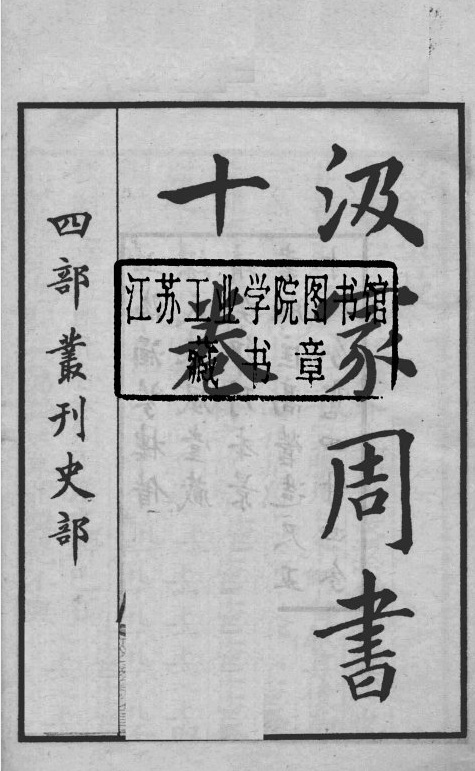 汲冢周書
十卷
四部叢刊史部
江苏工业学院图书馆
藏书章